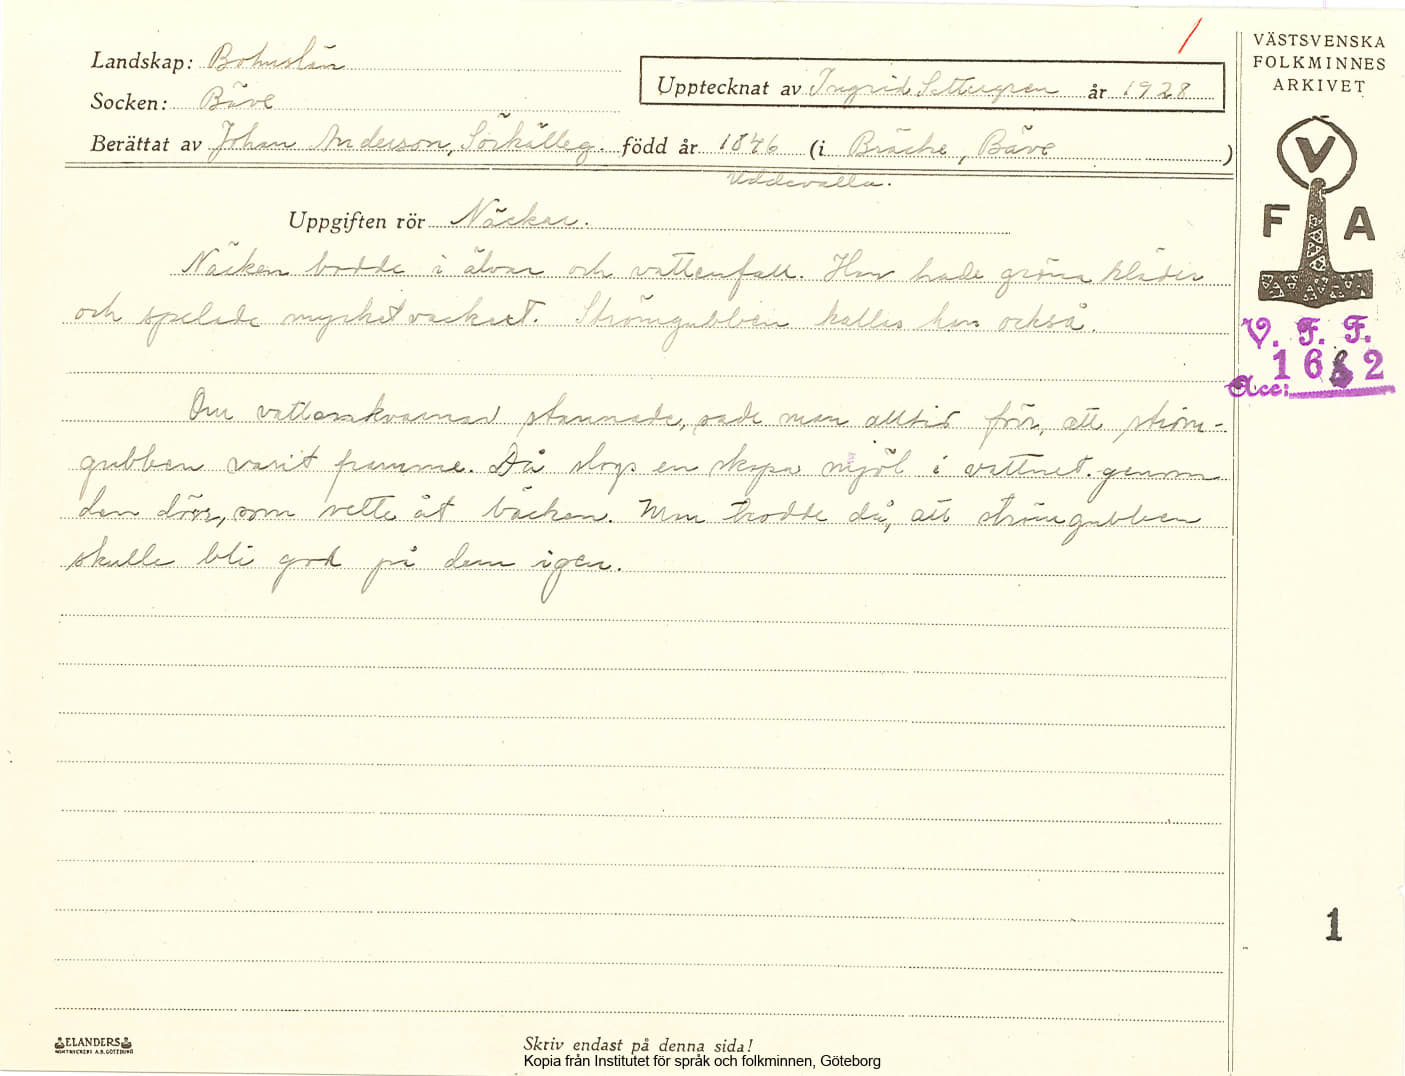 Landskap: Bohuslän
Socken: Bäve
Upptecknat av Ingrid Settergren år 1928
Berättat av Johan Anderson, Sörkälleg. född år 1846 (i Bräcke, Bäve)
Uddevalla.
Uppgiften rör Näcken.
Näcken bodde i älvar och vattenfall. Han hade gröna kläder
och spelade mycket vackert. Strömgubben kallas han också.
Om vattenkvarnar stannade, sade man alltid förr, att ström-
gubben varit framme. Då slogs en skopa mjöl i vattnet genom
den dörr, som vette åt bäcken. Man trodde då, att strömgubben
skulle bli god på dem igen.
VÄSTSVENSKA
FOLKMINNES
ARKIVET
V
F A
V. F. F.
Acc:
1
ELANDERS
BOKTRYCKERI A.B. GÖTEBORG
Skriv endast på denna sida!
Kopia från Institutet för språk och folkminnen, Göteborg